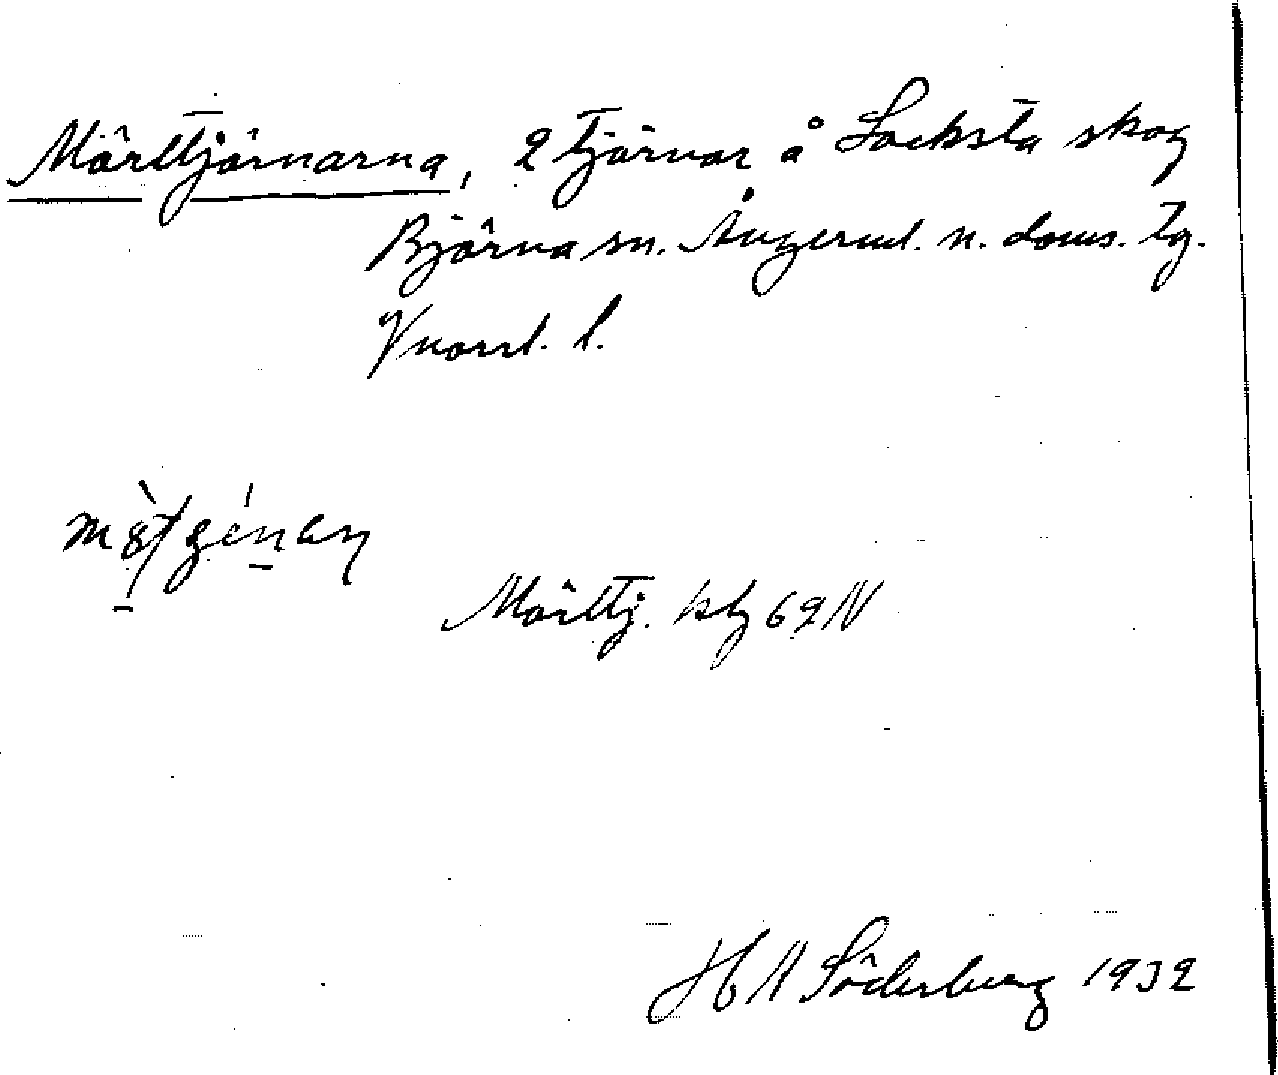 Mörttjärnarna, 2 tjärnar å Locksta skog
Björna sn. Ångerml. n. doms. tg.
Vnorrl. l.
Mörttj. kbl 62 N
H A Söderberg 1932